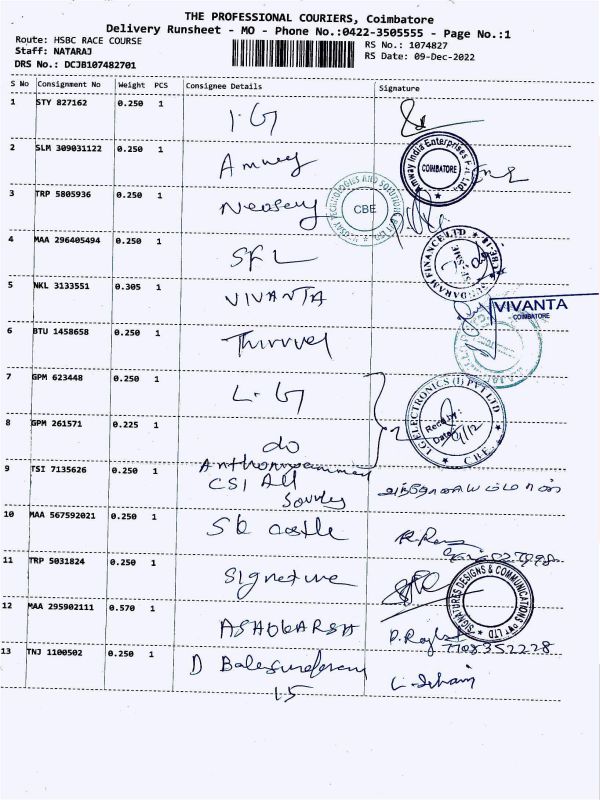 THE PROFESSIONAL COURIERS, Coimbatore
Delivery Runsheet - MO - Phone No.:0422-3505555 - Page No.:1
Route: HSBC RACE COURSE
RS No.: 1074827
Staff: NATARAJ
RS Date: 09-Dec-2022
DRS No.: DCJB107482701
S No Consignment No Weight PCS Consignee Details Signature
1 STY 827162 0.250 1
2 SLM 309031122 0.250 1 Amway
Amway India Enterprises Pvt. Ltd.
COIMBATORE
3 TRP 5805936 0.250 1
TECHNOLOGIES AND SOLUTIONS
CBE
4 MAA 296405494 0.250 1 SFL
SUNDARAM FINANCE LTD
5 NKL 3133551 0.305 1 VIVANTA
VIVANTA
COIMBATORE
6 BTU 1458658 0.250 1
7 GPM 623448 0.250 1 L.G
LG ELECTRONICS (I) PVT LTD
Date:
CBE
8 GPM 261571 0.225 1 do
9 TSI 7135626 0.250 1
CSI All
Souls
10 MAA 567592021 0.250 1 Sk castle
11 TRP 5031824 0.250 1 Signature
SIGNATURES DESIGNS & COMMUNICATIONS PVT LTD
12 MAA 295902111 0.570 1
7708352228
13 TNJ 1100502 0.250 1 D
15